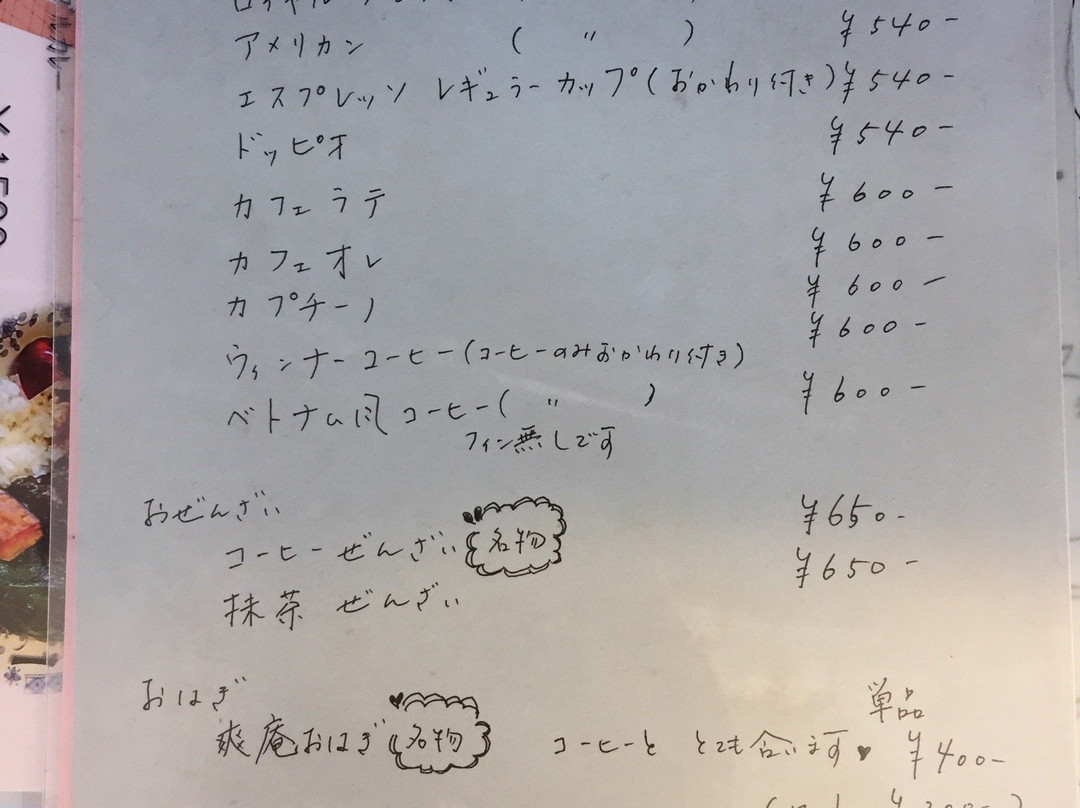 アメリカン ( 〃 ) ¥540-
エスプレッソ レギュラーカップ(おかわり付き) ¥540-
ドッピオ ¥540-
カフェラテ ¥600-
カフェオレ ¥600-
カプチーノ ¥600-
ウィンナーコーヒー(コーヒーのみおかわり付き) ¥600-
ベトナム風コーヒー( 〃 ) ¥600-
フィン無しです
おぜんざい
コーヒーぜんざい 名物 ¥650-
抹茶 ぜんざい ¥650-
おはぎ
単品
爽庵おはぎ 名物 コーヒーと とても合います♥ ¥400-